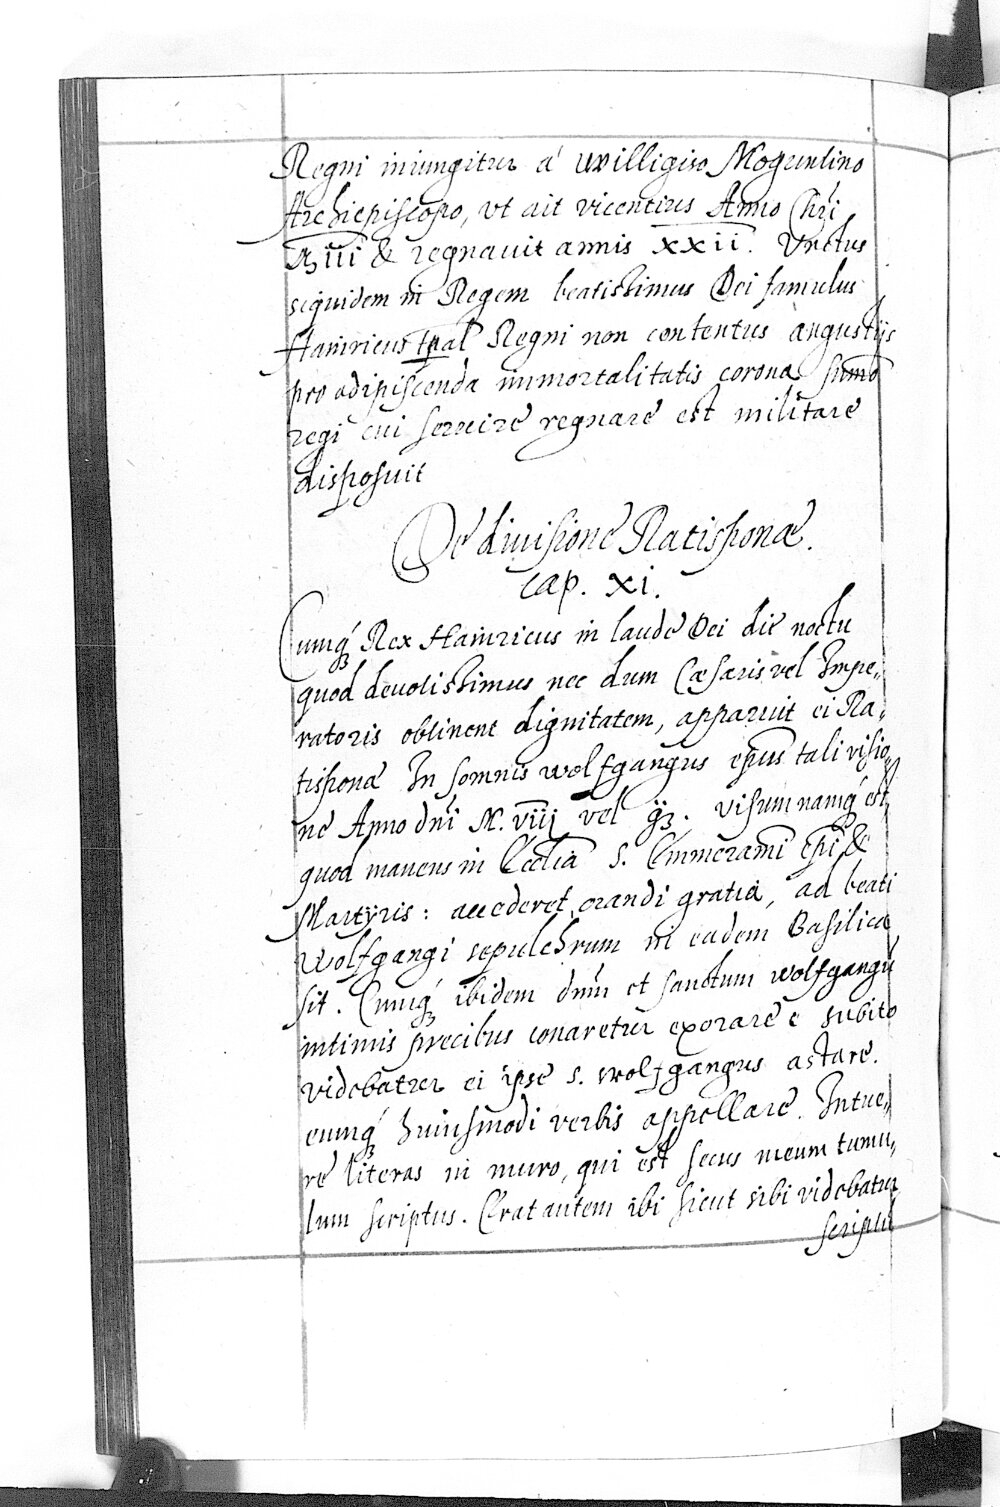 Regni iniungitur á Willigiso Moguntino
Archiepiscopo, vt ait vicentius Anno Chri
M iii & regnauit annis xxii. Vnctus
siquidem in Regem beatissimus Dei famulus
Hainricus tpal Regni non contentus angustijs
pro adipiscenda immortalitatis corona summo
regi cui seruire regnare est militare
disposuit
De diuisione Ratisponæ.
cap. xi.
Cumq́ꝫ Rex Hainricus in laude Dei die noctu
quod deuotissimus nec dum Cæsaris vel Impe„
ratoris obtinent dignitatem, apparuit ei Ra„
tisponæ In somnis wolfgangus epus tali visio„
ne Anno dni M. viij vel . visum namq́ est,
quod manens in Ecclia S. Emmerami Epi &
Martÿris: accederet orandi gratia, ad beati
Wolfgangi sepulchrum in eadem Basilica
sit. Cumq́ꝫ ibidem dnm et sanctum wolfgangū
intimis precibus conaretur exorare e subito
videbatur ei ipse S. wolfgangus astare.
eumq́ꝫ huiusmodi verbis appellare. Intue„
re literas in muro, qui est secus meum tumu„
lum scriptus. Erat autem ibi sicut sibi videbatur
scriptu